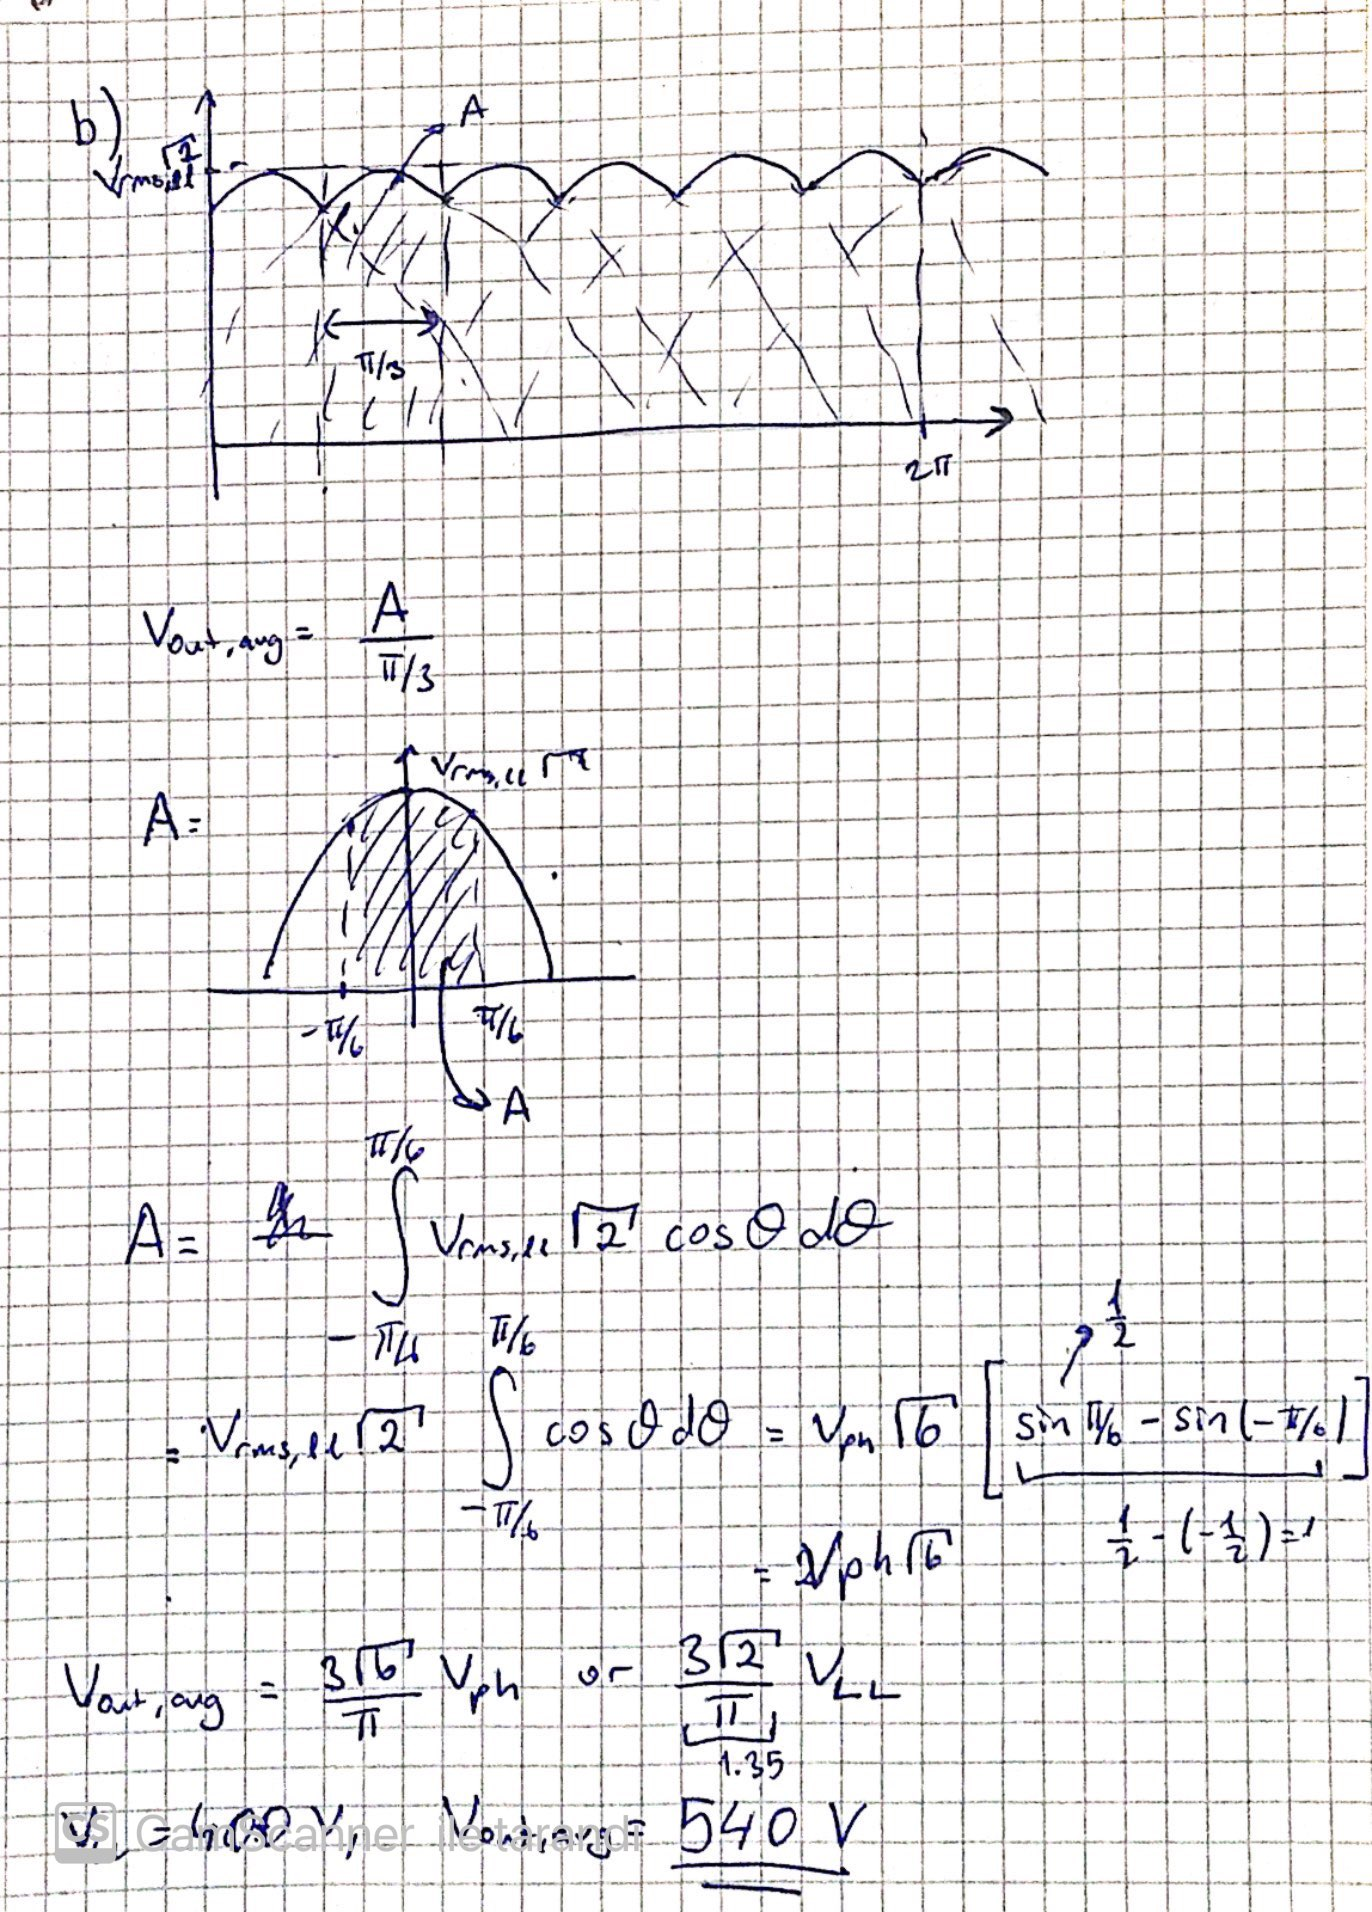 b)
A
Vrms,ll √2
π/3
2π
Vout,avg = A / π/3
Vrms,ll √2
A=
-π/6 π/6
A
A = ∫ from -π/6 to π/6 Vrms,ll √2 cos θ dθ
1/2
= Vrms,ll √2 ∫ from -π/6 to π/6 cos θ dθ = Vph √6 [sin π/6 - sin(-π/6)]
1/2 - (-1/2) = 1
= Vph √6
Vout,avg = 3√6/π Vph or 3√2/π VLL
1.35
= 400 V, Vout,avg = 540 V
CS CamScanner ile tarandı